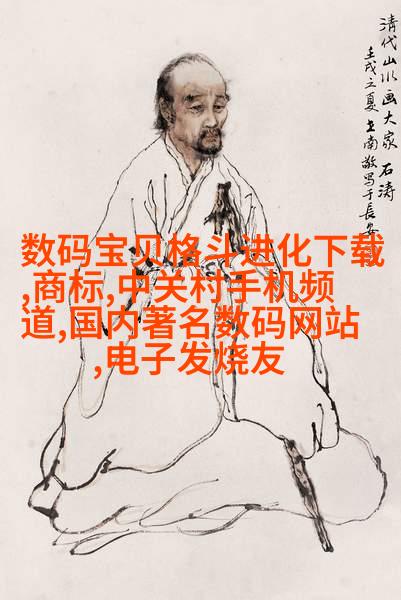 清代山水画大家 石涛
壬戌之夏 王南敬写于長安
数码宝贝格斗进化下载
,商标,中关村手机频
道,国内著名数码网站
,电子发烧友